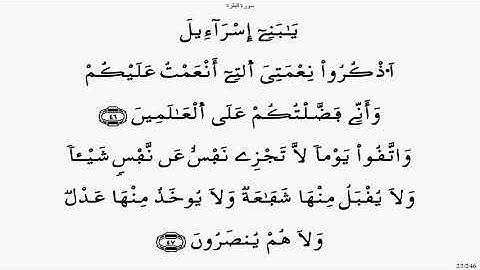 سورة البقرة
يَٰبَنِےٓ إِسْرَآءِيلَ
اَ۟ذْكُرُواْ نِعْمَتِيَ اَ۬لتِےٓ أَنْعَمْتُ عَلَيْكُمْ
وَأَنِّے فَضَّلْتُكُمْ عَلَى اَ۬لْعَٰلَمِينَ ٤٦
وَاتَّقُواْ يَوْماٗ لَّا تَجْزِے نَفْسٌ عَن نَّفْسٖ شَيْـٔاٗ
وَلَا يُقْبَلُ مِنْهَا شَفَٰعَةٞ وَلَا يُوخَذُ مِنْهَا عَدْلٞ
وَلَا هُمْ يُنصَرُونَ ٤٧
27/246